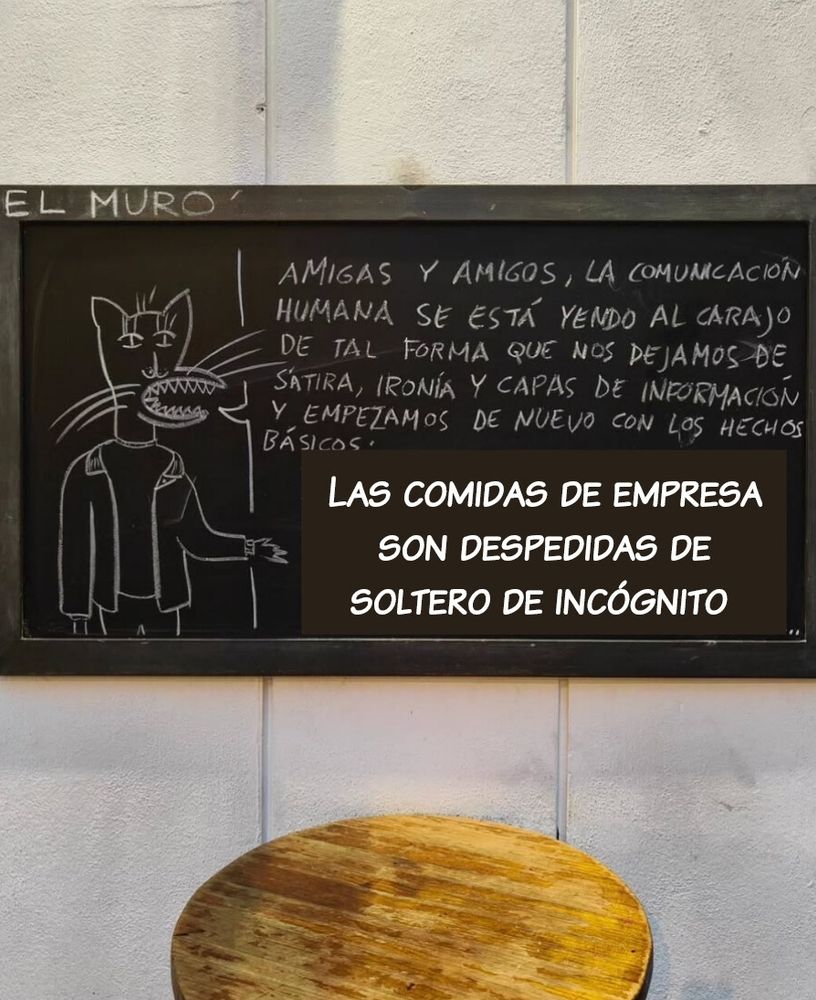 EL MURO
AMIGAS Y AMIGOS, LA COMUNICACIÓN
HUMANA SE ESTÁ YENDO AL CARAJO
DE TAL FORMA QUE NOS DEJAMOS DE
SÁTIRA, IRONÍA Y CAPAS DE INFORMACIÓN
Y EMPEZAMOS DE NUEVO CON LOS HECHOS
BÁSICOS.
LAS COMIDAS DE EMPRESA
SON DESPEDIDAS DE
SOLTERO DE INCÓGNITO